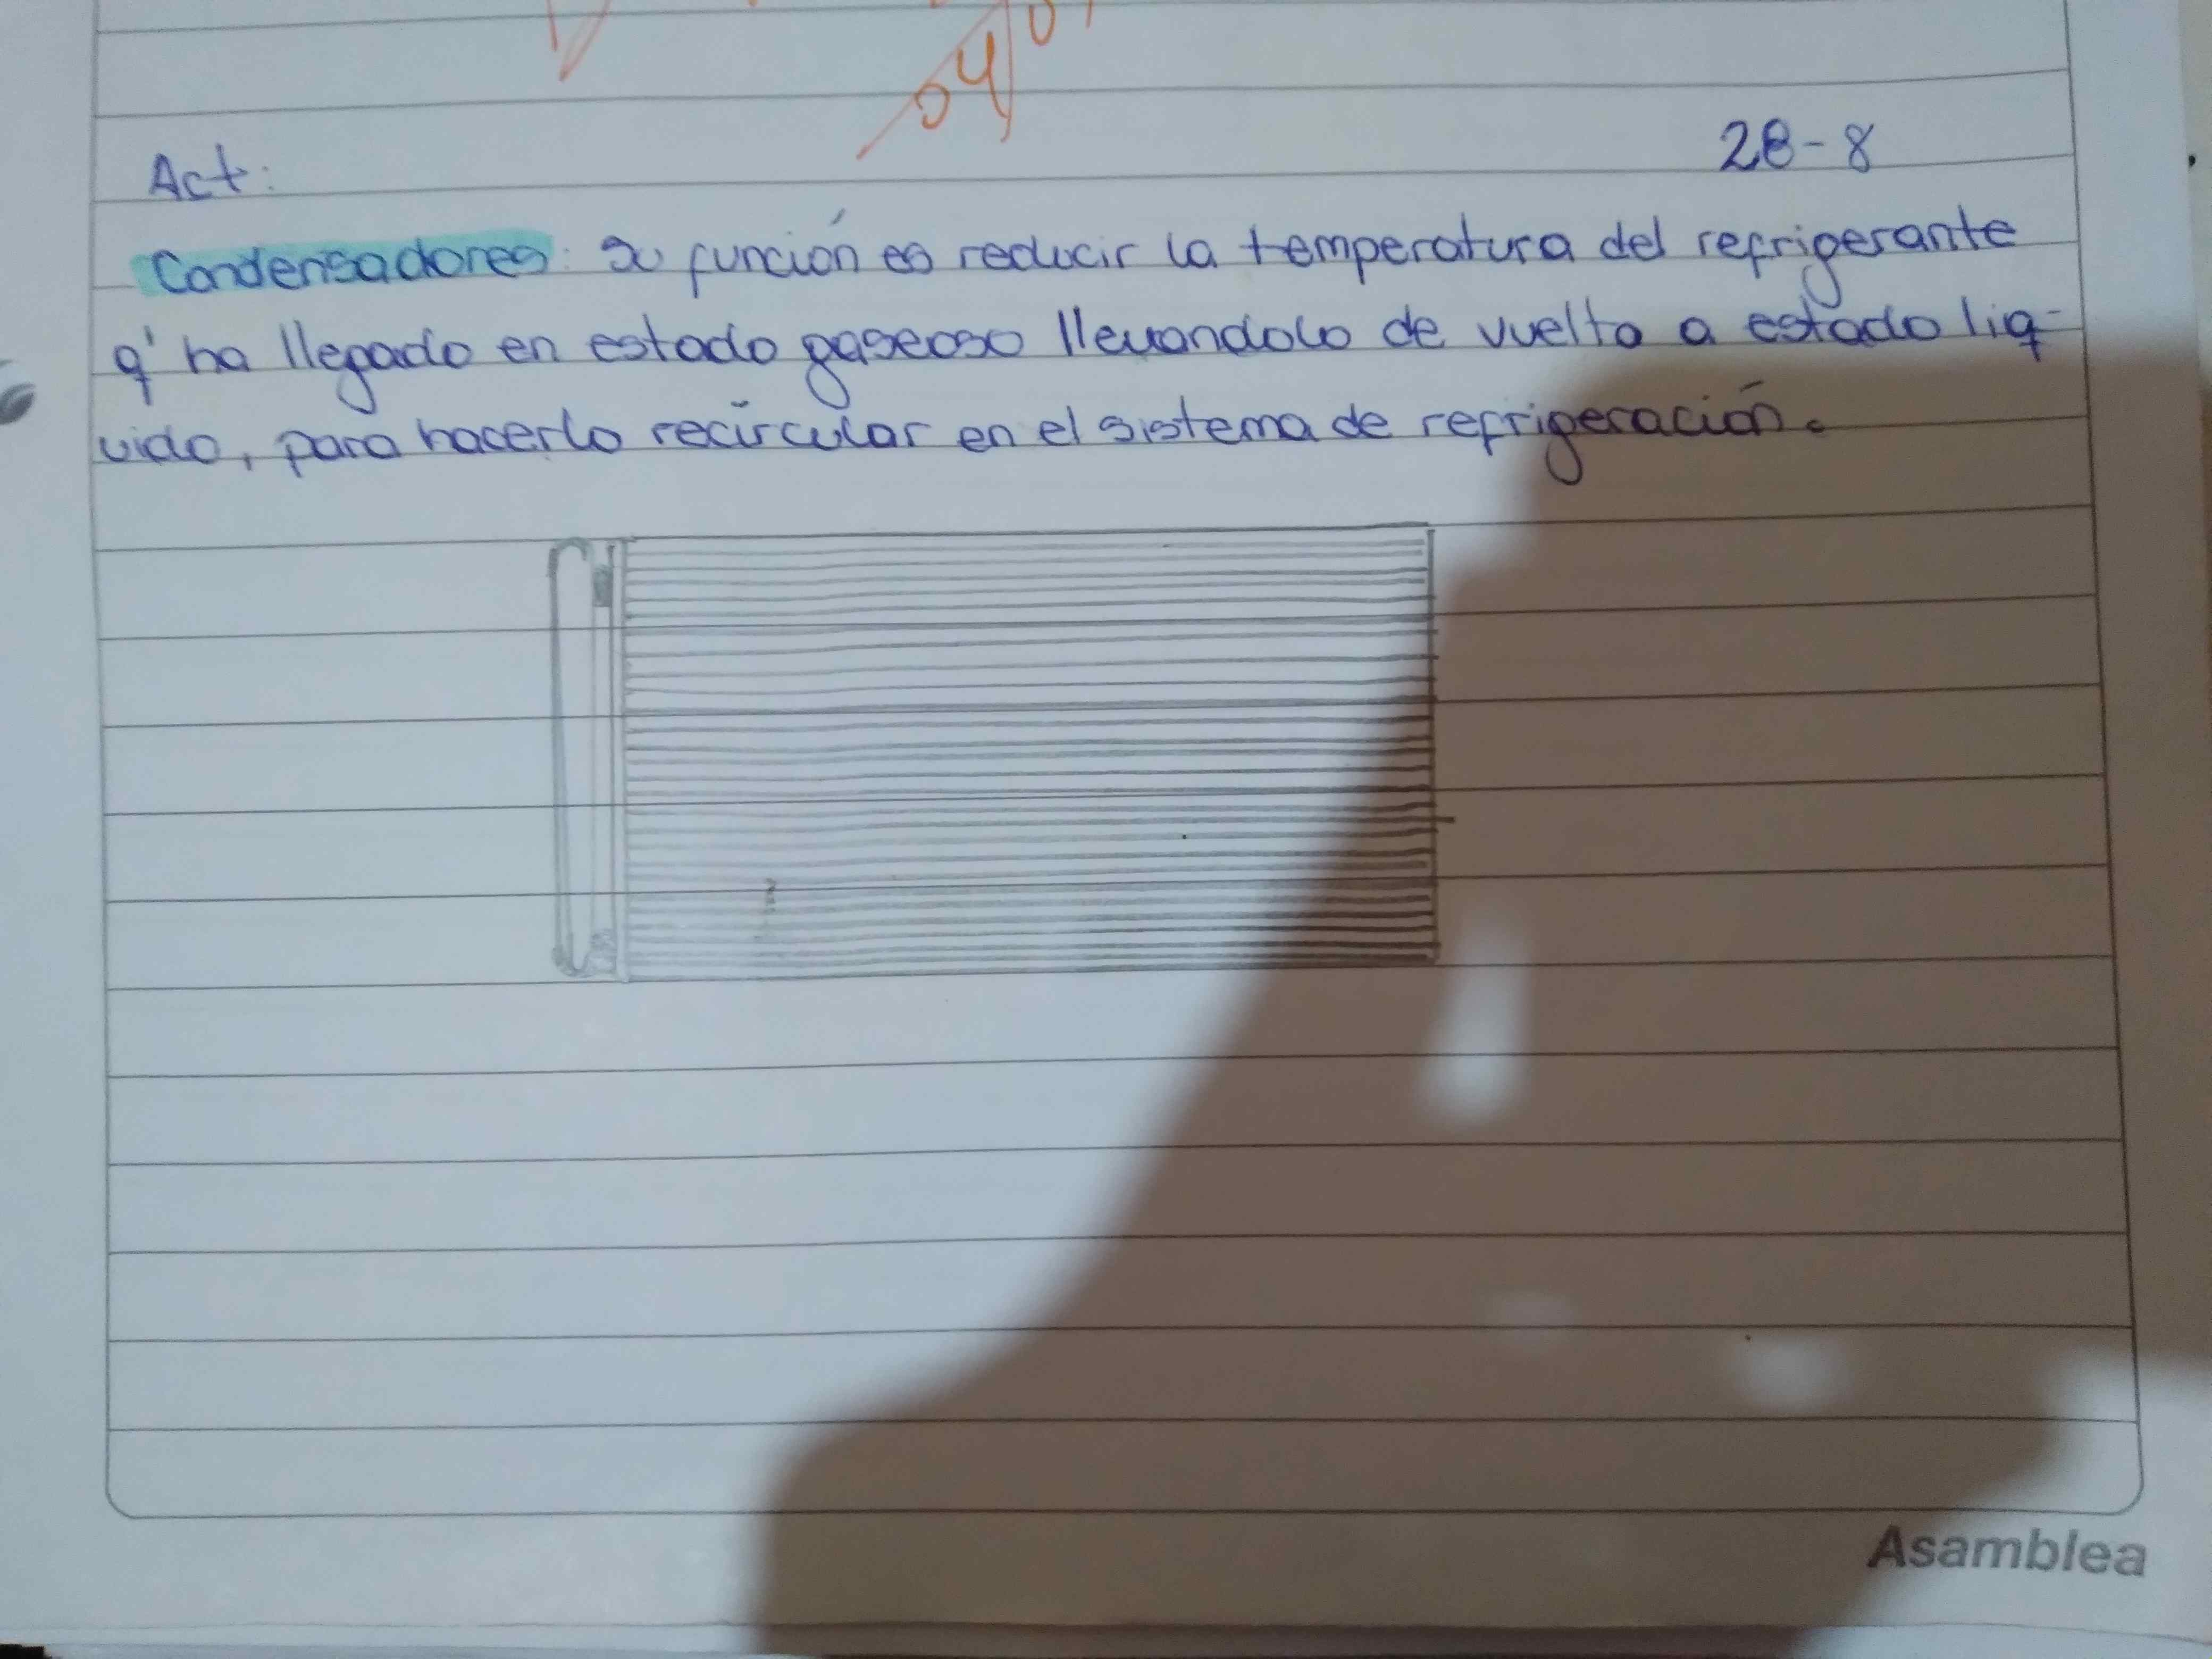 Act:
28-8
Condensadores: su función es reducir la temperatura del refrigerante
q' ha llegado en estado gaseoso llevandolo de vuelto a estado liq-
uido, para hacerlo recircular en el sistema de refrigeración.
Asamblea